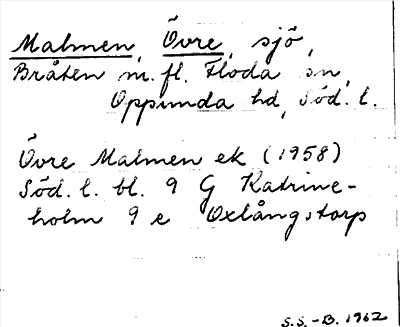 Malmen, Övre, sjö,
Bråten m.fl. Floda sn,
Oppunda hd, Söd. l.
Övre Malmen ek (1958)
Söd. l. bl. 9 G Katrine-
holm 9 e Oxlångstorp
S.S.-B. 1962